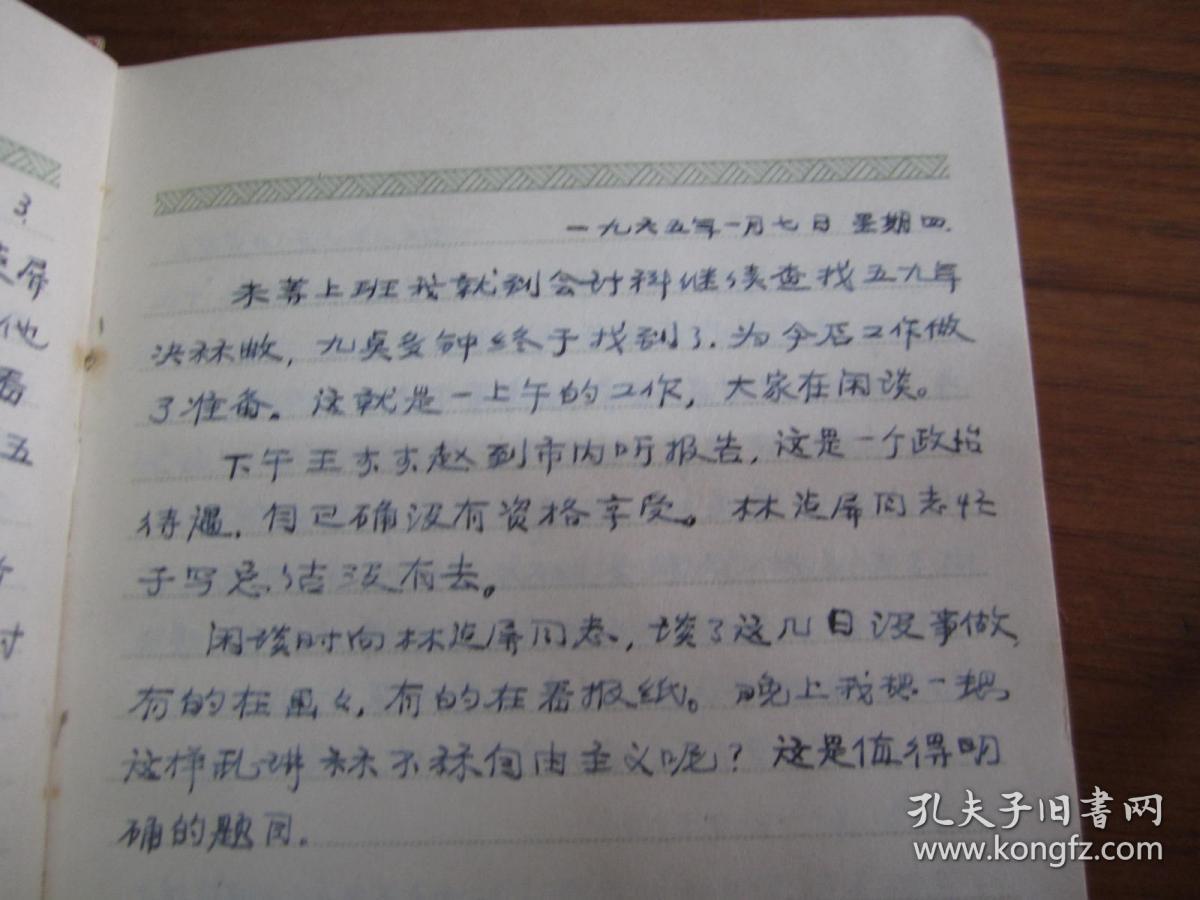 3.
屏
他
看
五
讨
一九六五年一月七日 星期四.
未等上班我就到会计科继续查找五九年
决祘收,九点多钟终于找到了.为今后工作做
了准备。这就是一上午的工作,大家在闲谈。
下午王 赵到市内听报告,这是一个政治
待遇,自己确没有资格享受。林 屏同志忙
于写总结没有去。
闲谈时向林 屏同志,谈了这几日没事做,
有的在画々,有的在看报纸。晚上我想一想,
这样乱讲祘不祘自由主义呢?这是值得明
确的题目。
孔夫子旧書网
www.kongfz.com